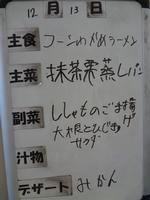 12月13日
主食 コーンわかめラーメン
主菜 抹茶栗蒸しパン
副菜 ししゃものごま揚げ
大根とひじき
サラダ
汁物
デザート みかん